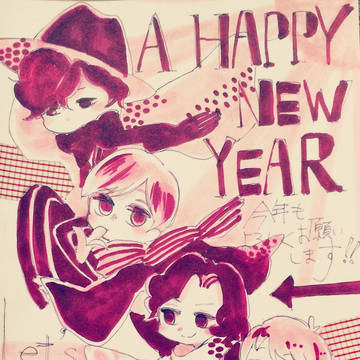 A HAPPY
NEW
YEAR
今年も
お願い
します!!
Let's